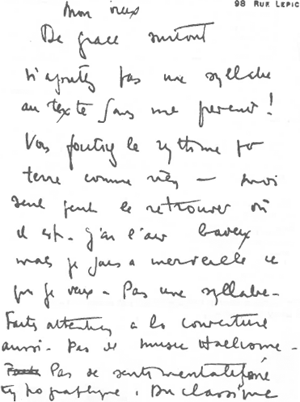 98 RUE LEPIC
Mon vieux
De grace surtout
n'ajoutez pas une syllabe
au texte sans me prevenir !
Vous foutriez le rythme par
terre comme rien — moi
seul peut le retrouver où
il est. J'ai l'air baveux
mais je sais a merveille ce
que je veux - Pas une syllabe.
Faites attention a la couverture
aussi. Pas de music Hallisme.
Pas de sentimentalité
typographique. Du classique